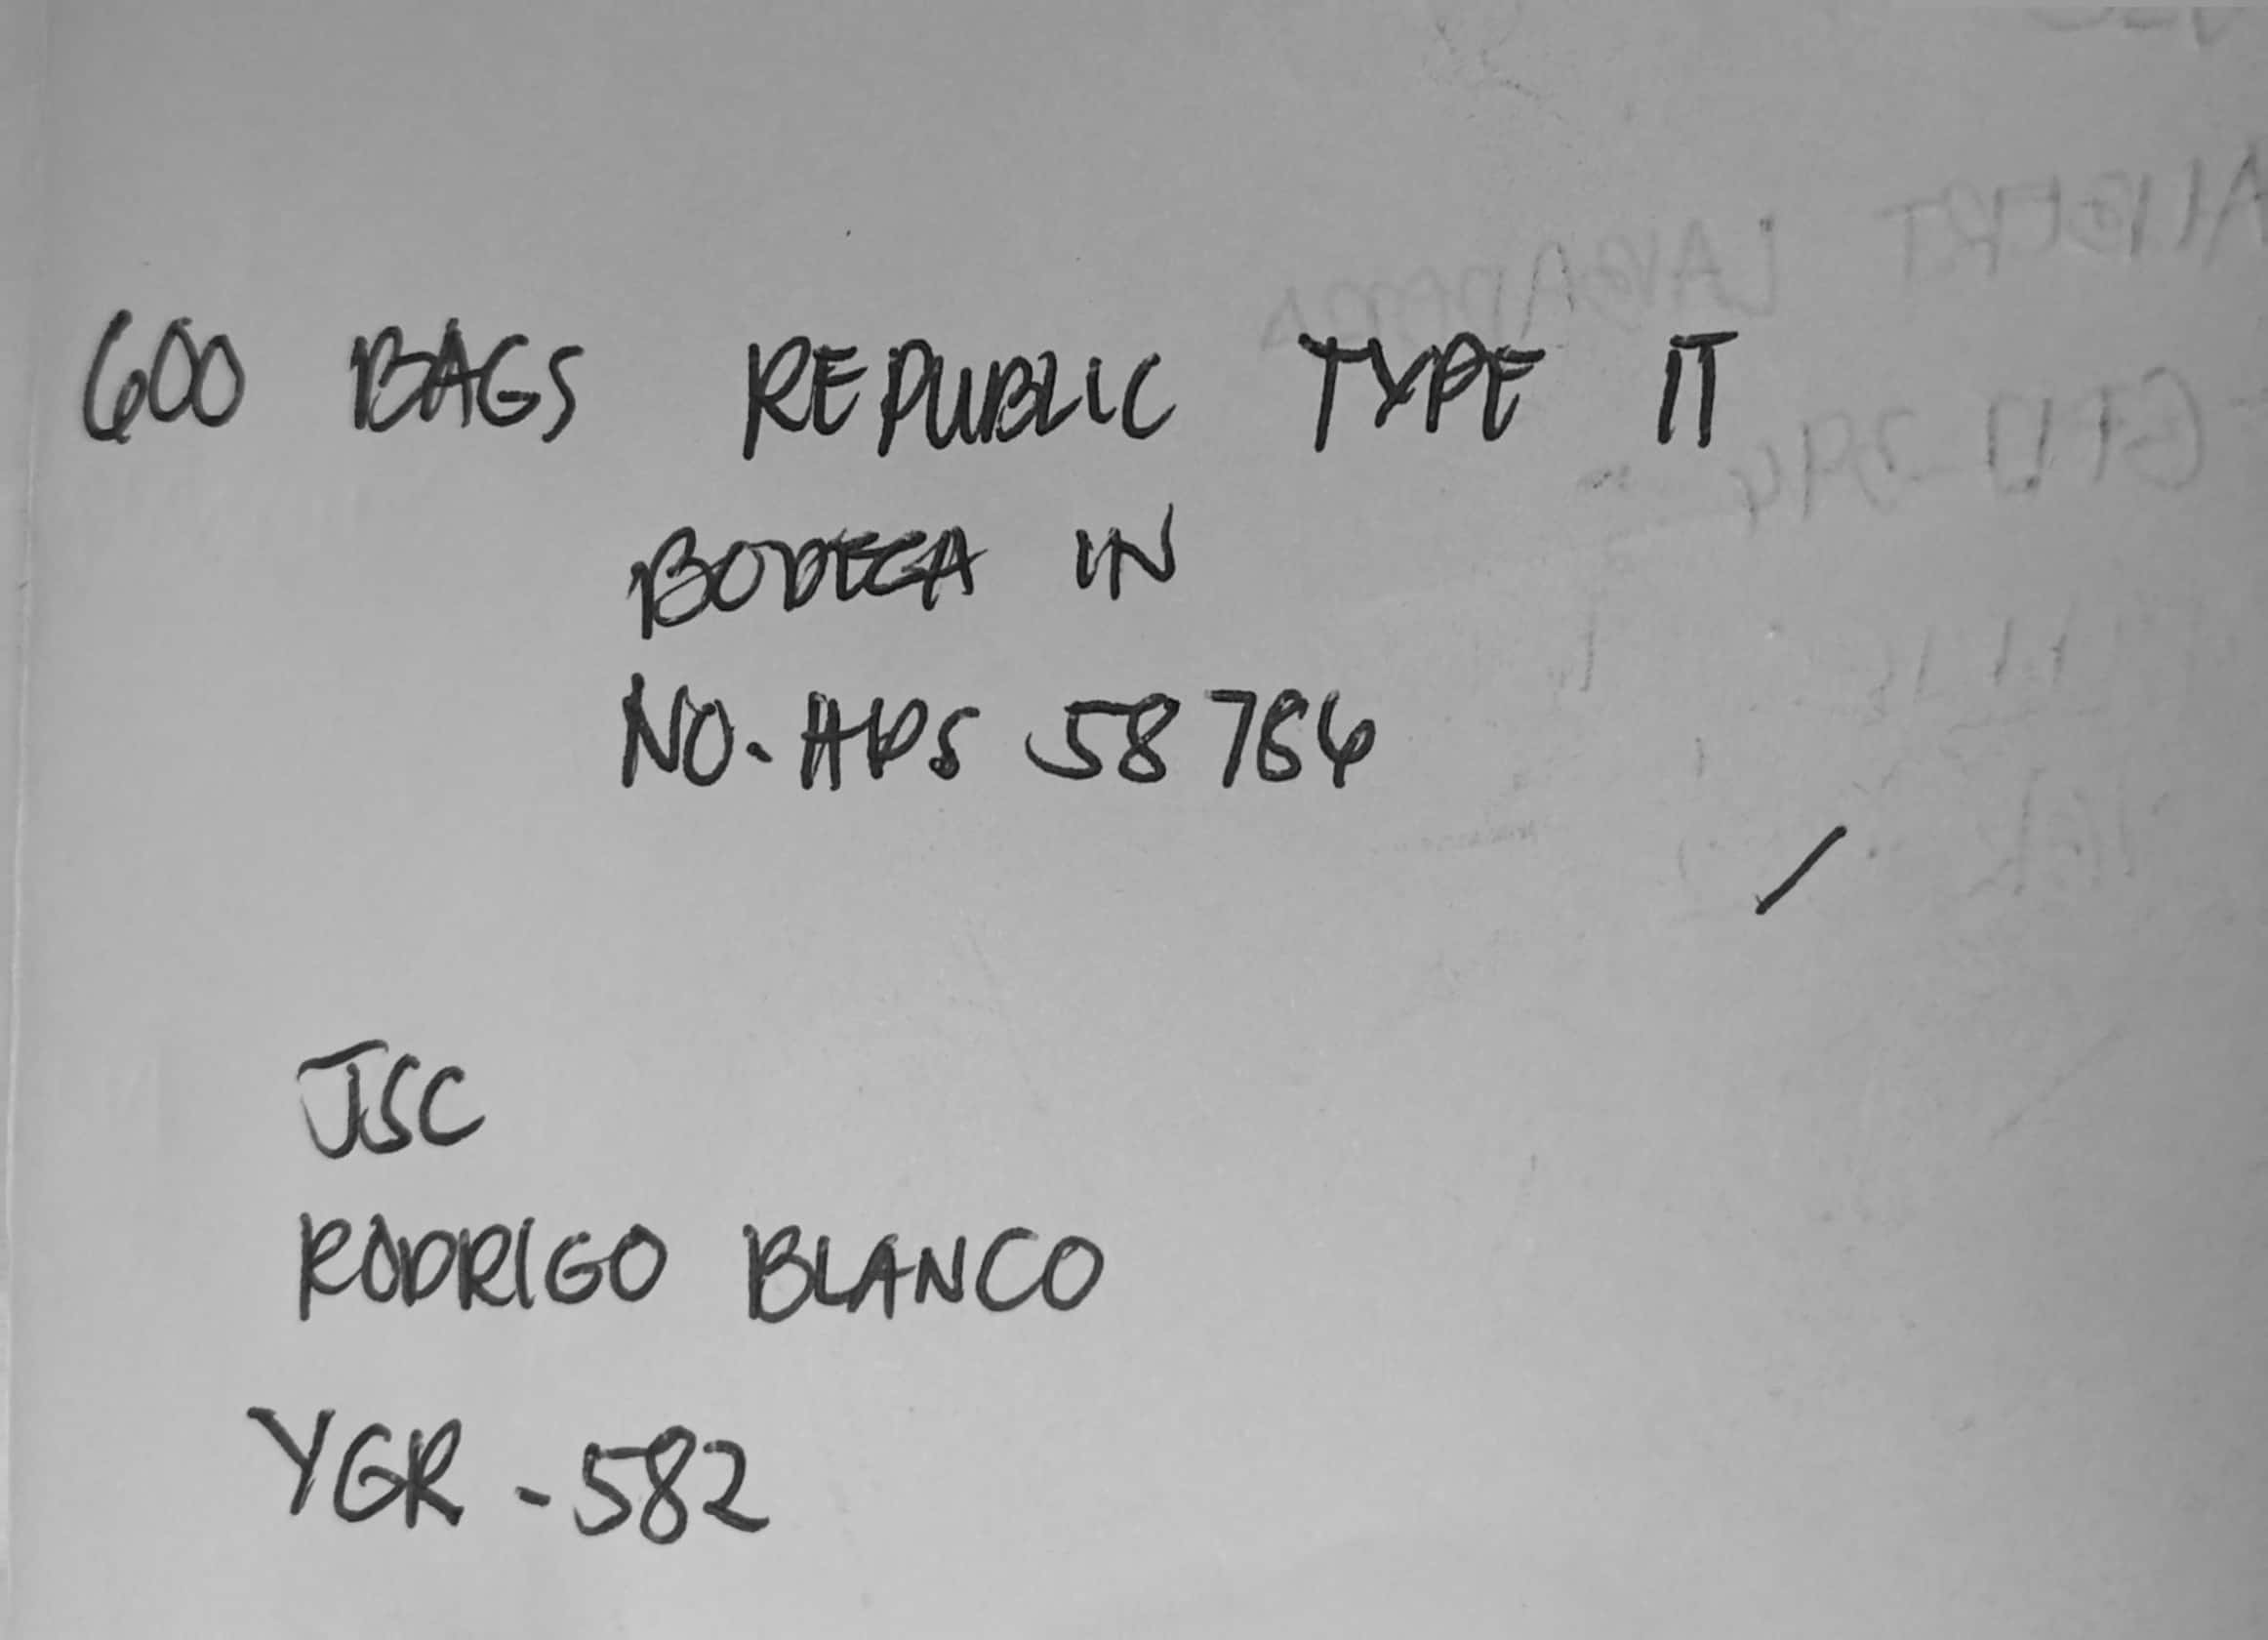 600 BAGS REPUBLIC TYPE IT
BODEGA IN
NO. HDS 58784
JSC
RODRIGO BLANCO
YGR - 582